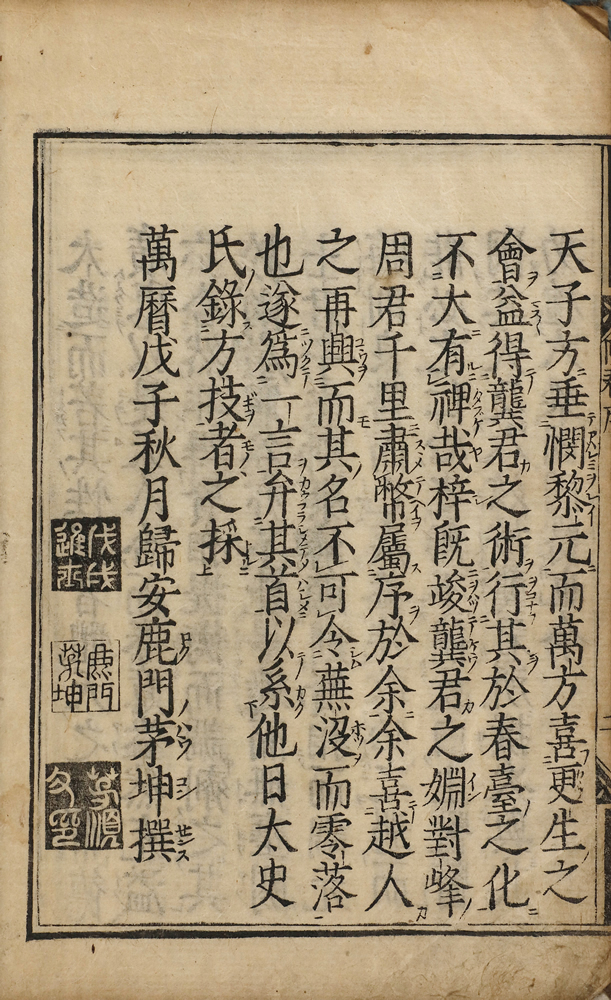 天子方垂憫黎元而萬方喜更生之
會益得龔君之術行其於春臺之化
不大有裨哉梓旣竣龔君之婣對峰
周君千里肅幣屬序於余余喜越人
之再興而其名不可令蕪没而零落
也遂爲一言弁其首以系他日太史
氏錄方技者之採
萬曆戊子秋月歸安鹿門茅坤撰
戊戌進士
鹿門茅坤